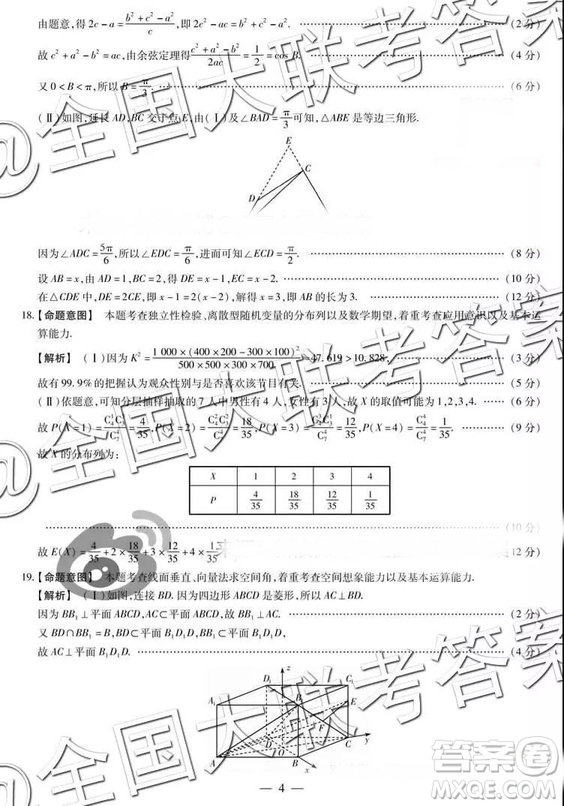 由题意,得2c-a=(b²+c²-a²)/c,即2c²-ac=b²+c²-a². (2分)
故c²+a²-b²=ac,由余弦定理得(c²+a²-b²)/2ac=1/2=cos B. (4分)
又0<B<π,所以B=π/3. (6分)
(Ⅱ)如图,延长AD,BC交于点E,由(Ⅰ)及∠BAD=π/3可知,△ABE是等边三角形.
E
C
D
因为∠ADC=5π/6,所以∠EDC=π/6,进而可知∠ECD=π/2. (8分)
设AB=x,由AD=1,BC=2,得DE=x-1,EC=x-2. (10分)
在△CDE中,DE=2CE,即x-1=2(x-2),解得x=3,即AB的长为3. (12分)
18.【命题意图】 本题考查独立性检验、离散型随机变量的分布列以及数学期望,着重考查应用意识以及基本运
算能力.
【解析】 (Ⅰ)因为K²=1 000×(400×200-300×100)²/(500×500×300×700)≈47.619>10.828, (3分)
故有99.9%的把握认为观众性别与是否喜欢该节目有关. (5分)
(Ⅱ)依题意,可知分层抽样抽取的7人中男性有4人,女性有3人,故X的取值可能为1,2,3,4. (6分)
故P(X=1)=C₄¹C₃³/C₇⁴=4/35,P(X=2)=C₄²C₃²/C₇⁴=18/35,P(X=3)=C₄³C₃¹/C₇⁴=12/35,P(X=4)=C₄⁴/C₇⁴=1/35. (9分)
故X的分布列为:
X 1 2 3 4
P 4/35 18/35 12/35 1/35
(10分)
故E(X)=4/35+2×18/35+3×12/35+4×1/35 (12分)
19.【命题意图】 本题考查线面垂直、向量法求空间角,着重考查空间想象能力以及基本运算能力.
【解析】 (Ⅰ)如图,连接BD.因为四边形ABCD是菱形,所以AC⊥BD. (2分)
因为BB₁⊥平面ABCD,AC⊂平面ABCD,故AC⊥BB₁.
又BD∩BB₁=B,BD⊂平面B₁D₁D,BB₁⊂平面B₁D₁D, (4分)
故AC⊥平面B₁D₁D. (5分)
z
D₁
C₁
A₁
B₁
E
F
D
C
y
A
B
x
— 4 —
@全国大联考答案
答案卷
MXQE.COM